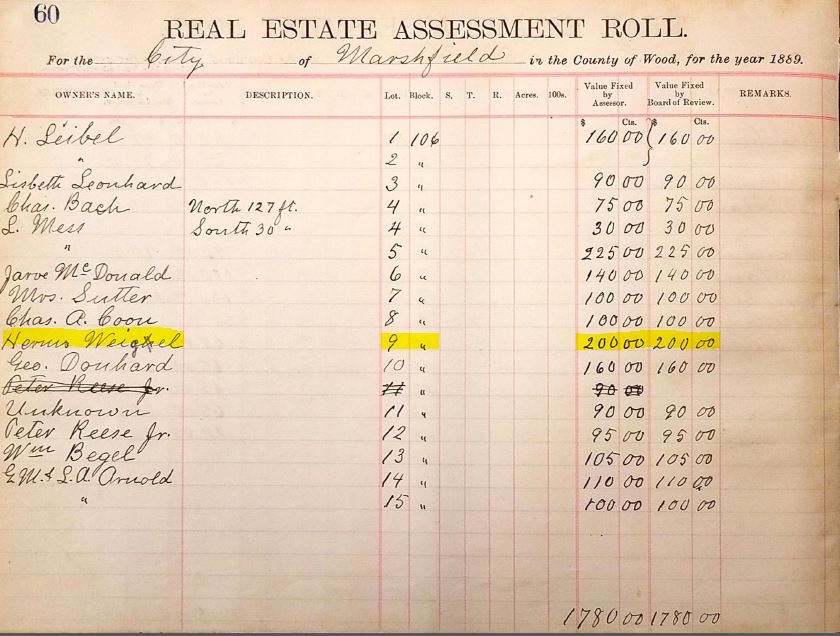 60
REAL ESTATE ASSESSMENT ROLL.
For the City of Marshfield in the County of Wood, for the year 1889.
OWNER'S NAME. DESCRIPTION. Lot. Block. S. T. R. Acres. 100s. Value Fixed by Assessor. Value Fixed by Board of Review. REMARKS.
$ Cts. $ Cts.
H. Seibel 1 106 160 00 } 160 00
" 2 "
Lisbeth Leonhard 3 " 90 00 90 00
Chas. Bach North 127 ft. 4 " 75 00 75 00
L. Mess South 30 " 4 " 30 00 30 00
" 5 " 225 00 225 00
Jarve McDonald 6 " 140 00 140 00
Mrs. Sutter 7 " 100 00 100 00
Chas. A. Coon 8 " 100 00 100 00
Weigel 9 " 200 00 200 00
Geo. Donhard 10 " 160 00 160 00
Peter Reese Jr. 11 " 90 00
Unknown 11 " 90 00 90 00
Peter Reese Jr. 12 " 95 00 95 00
Wm Begel 13 " 105 00 105 00
G.M. & L.A. Arnold 14 " 110 00 110 00
" 15 " 100 00 100 00
1780 00 1780 00